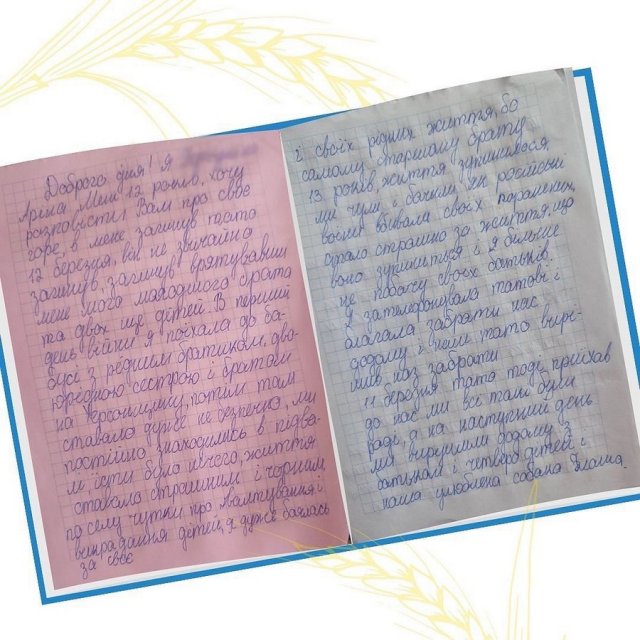 Доброго дня! Я
Аріна Мені 12 років, хочу
розповісти Вам про своє
горе, в мене загинув тато
12 березня, він не звичайно
загинув, загинув врятувавши
мене мого молодшого брата
та двох ще дітей. В перший
день війни я поїхала до ба-
бусі з рідним братиком, дво-
юрідною сестрою і братом
на Херсонщину, потім там
ставало дуже не безпечно, ми
постійно знаходились в підва-
лі, їсти було нічого, життя
ставало страшним і чорним
по селу чутки про гвалтування і
викрадання дітей, я дуже боялась
за своє
і своїх рідних життя, бо
самому старшому брату
13 років, життя зупинилося,
ми чули і бачили як російські
воїни вбивали своїх поранених,
стало страшно за життя, що
воно зупиниться і я більше
не побачу своїх батьків.
Я зателефонувала татові і
благала забрати нас
додому і мій тато вирі-
шив нас забрати
11 березня тато тоді приїхав
до нас ми всі там були
раді, а на наступний день
ми вирушили додому з
батьком і четверо дітей і
наша улюблена собака